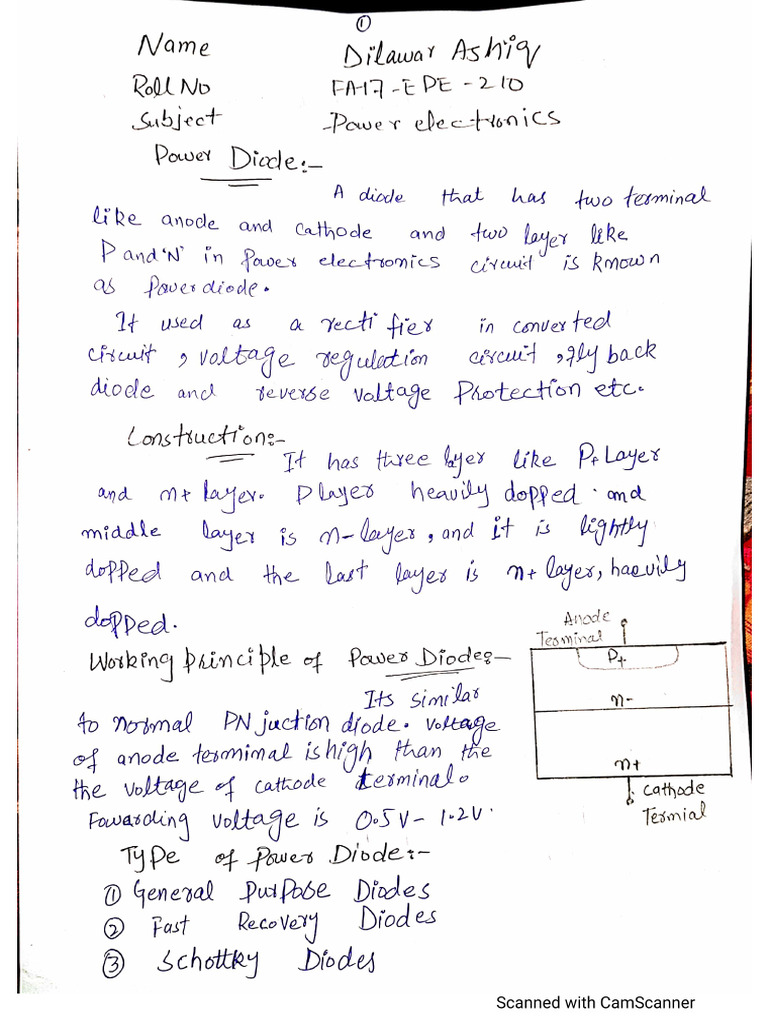 ①
Name Dilawar Ashiq
Roll No FA17-EPE-210
Subject Power electronics
Power Diode:-
A diode that has two terminal
like anode and cathode and two layer like
P and 'N' in Power electronics circuit is known
as Power diode.
It used as a rectifier in converted
circuit, voltage regulation circuit, fly back
diode and reverse voltage Protection etc.
Construction:-
It has three layer like P+ Layer
and n+ layer. P layer heavily dopped and
middle layer is n- layer, and it is lightly
dopped and the last layer is n+ layer, heavily
dopped.
Anode
Terminal
P+
n-
n+
Cathode
Termial
Working Principle of Power Diode:-
Its similar
to normal PN juction diode. voltage
of anode terminal is high than the
the voltage of cathode terminal.
Fowarding voltage is 0.5V - 1.2V.
Type of Power Diode:-
① General Purpose Diodes
② Fast Recovery Diodes
③ Schottky Diodes
Scanned with CamScanner